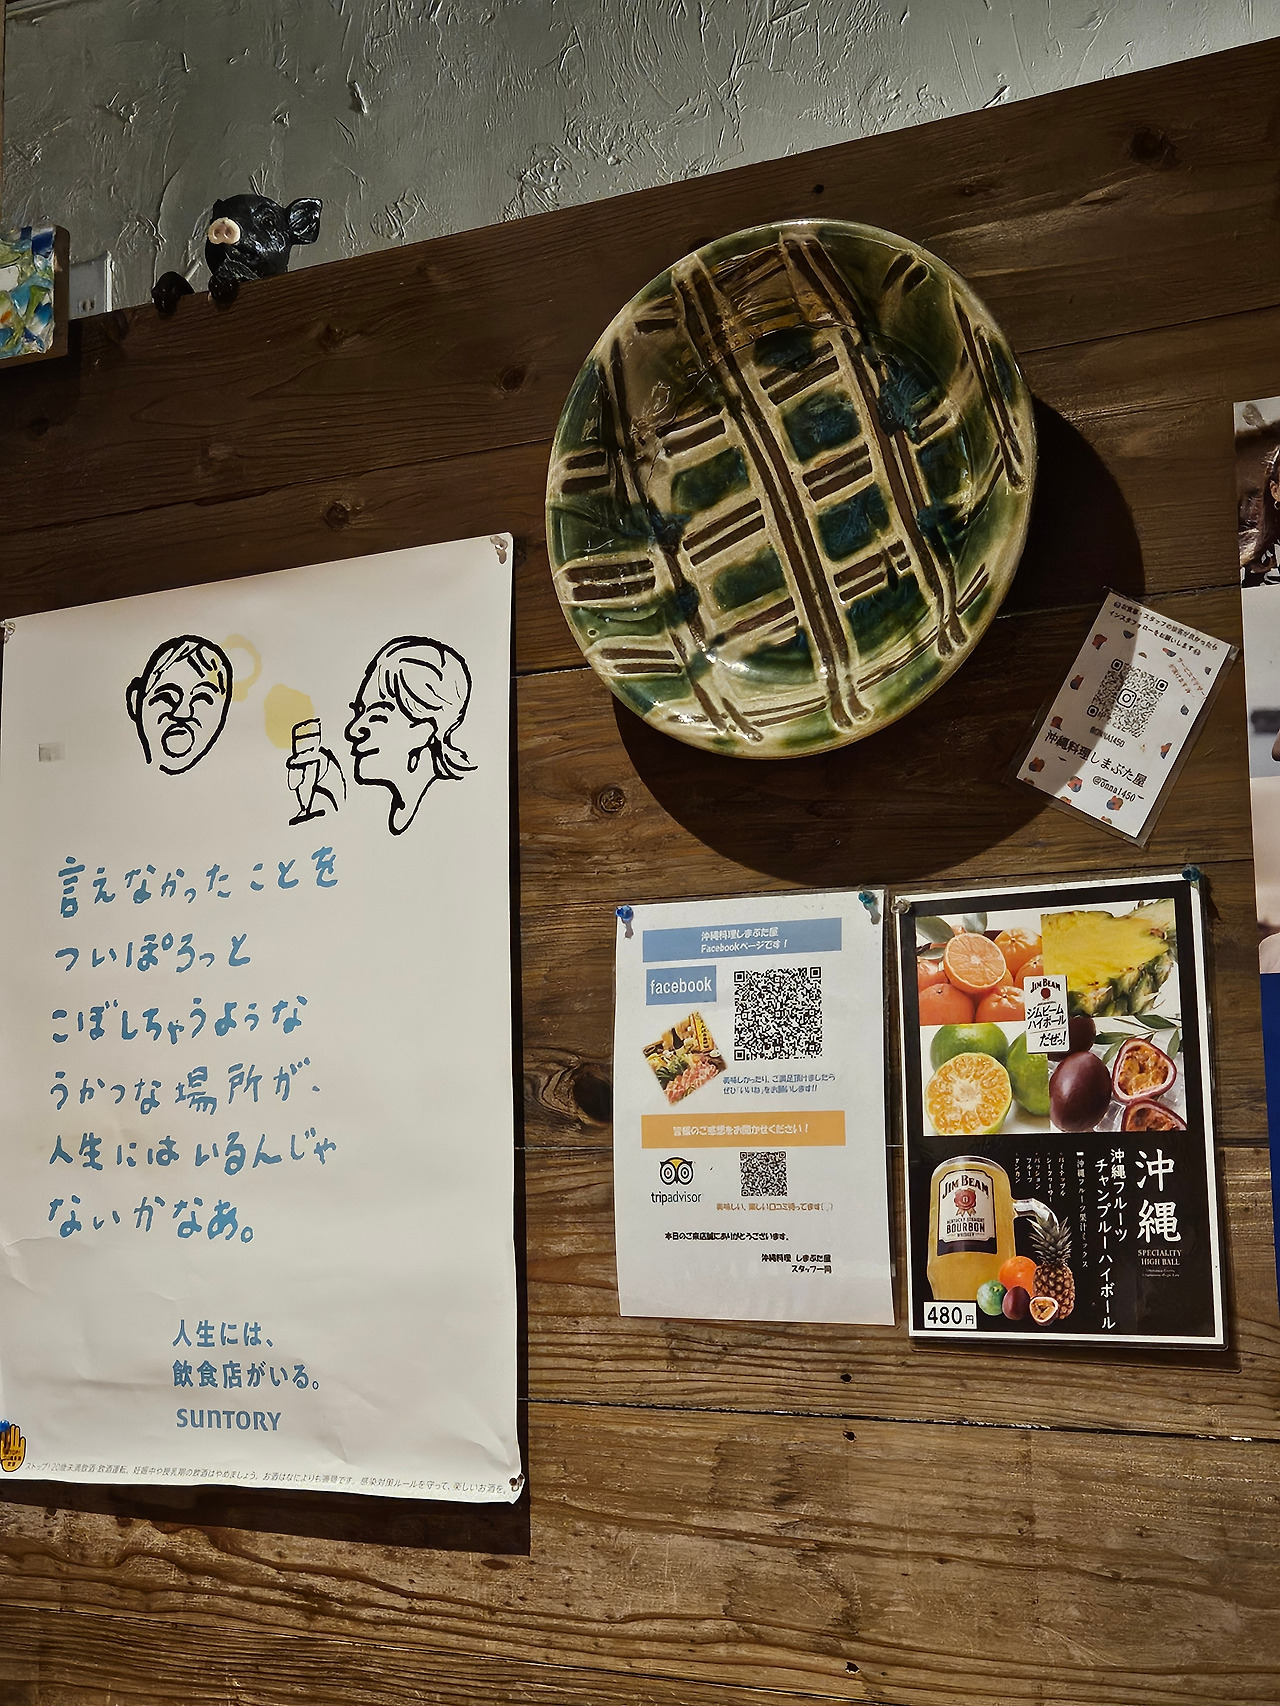 言えなかったことを
ついぽろっと
こぼしちゃうような
うかつな場所が、
人生にはいるんじゃ
ないかなあ。
人生には、
飲食店がいる。
SUNTORY
ストップ!20歳未満飲酒・飲酒運転。妊娠中や授乳期の飲酒はやめましょう。お酒はなによりも適量です。感染対策ルールを守って、楽しいお酒を。
インスタフォローをお願いします
@ONNA1450
沖縄料理しまぶた屋
@onna1450
沖縄料理しまぶた屋
Facebookページです!
facebook
美味しかったり、ご満足頂けましたら
ぜひ「いいね」をお願いします!!
皆様のご感想をお聞かせください!
tripadvisor
美味しい、楽しい口コミ待ってます
本日のご来店誠にありがとうございます。
沖縄料理 しまぶた屋
スタッフ一同
JIM BEAM
ジムビーム
ハイボール
だぜっ!
沖縄
SPECIALITY
HIGH BALL
沖縄フルーツ
チャンプルーハイボール
沖縄フルーツ果汁ミックス
パイナップル
シークヮーサー
パッションフルーツ
タンカン
JIM BEAM
KENTUCKY STRAIGHT
BOURBON
WHISKEY
480円